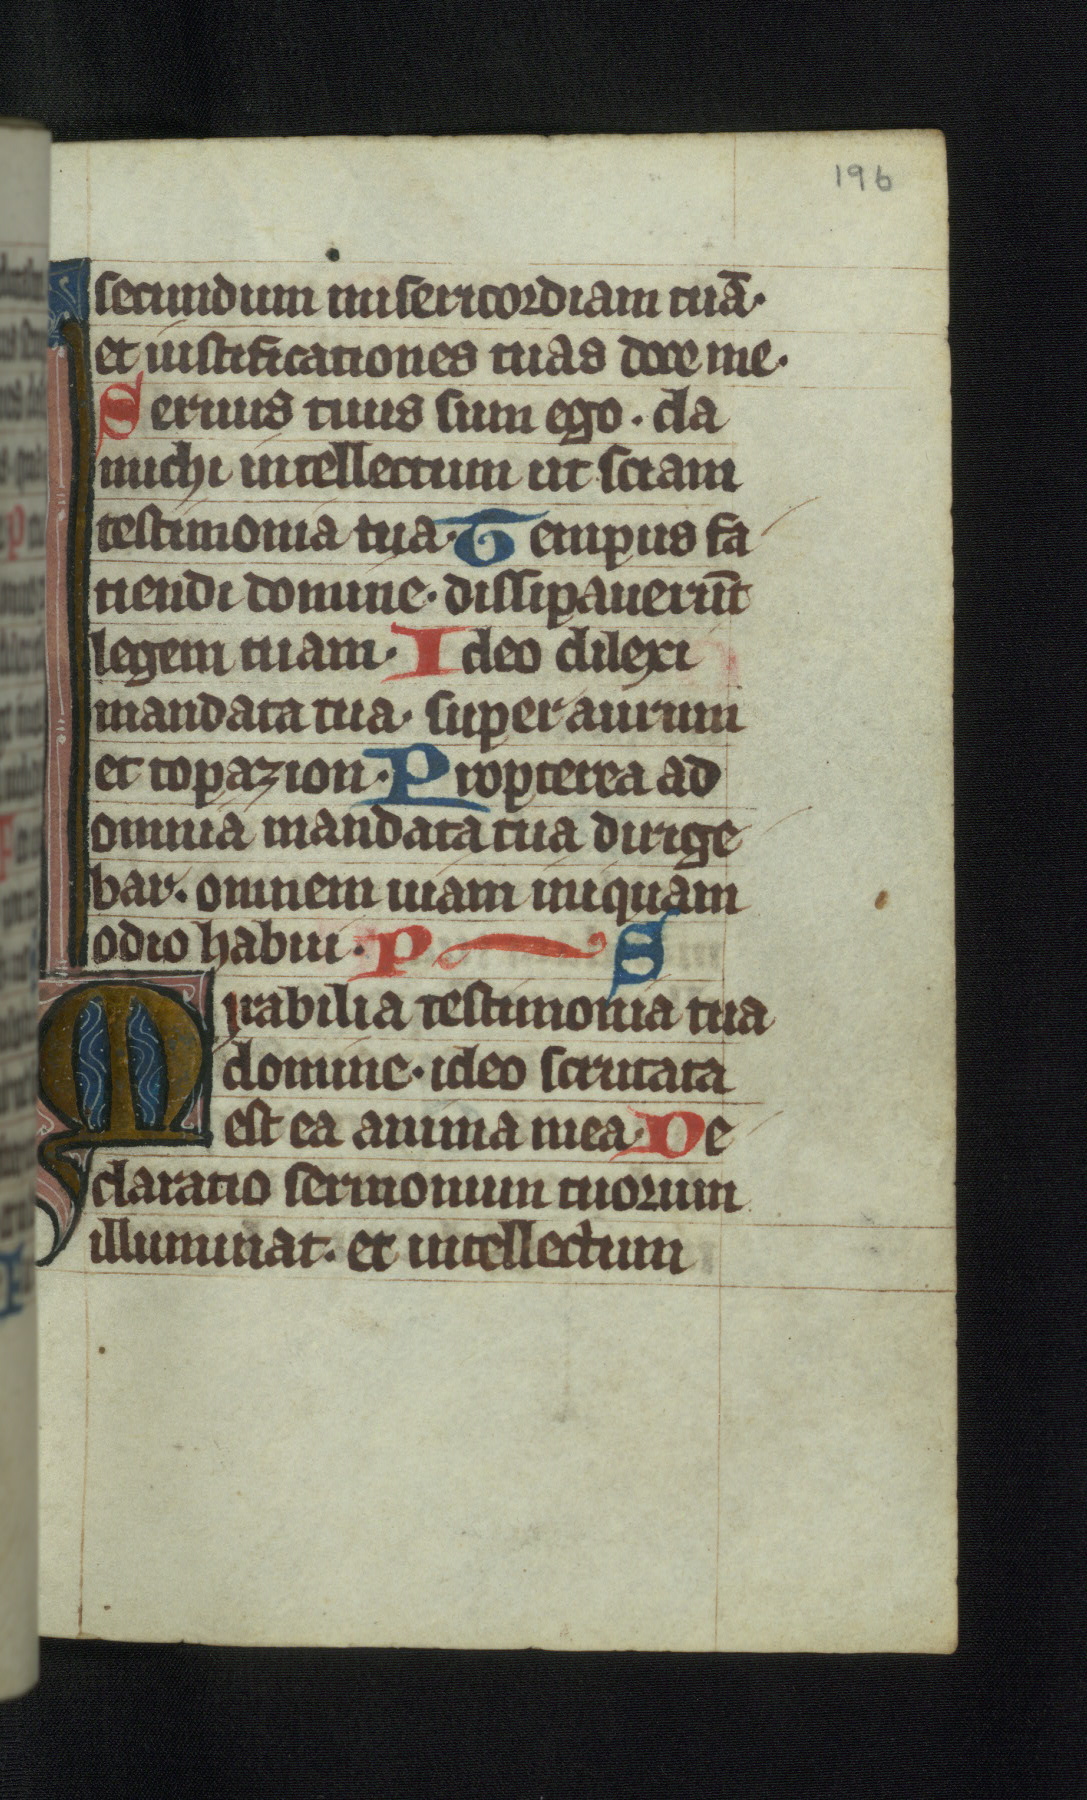 196
secundum misericordiam tuā·
et iustificationes tuas doce me·
Seruus tuus sum ego· da
michi intellectum ut sciam
testimonia tua· Tempus fa
ciendi domine· dissipauerūt
legem tuam· Ideo dilexi
mandata tua· super aurum
et topazion· Propterea ad
omnia mandata tua dirige
bar· omnem uiam iniquam
odio habui· P S
Mirabilia testimonia tua
domine· ideo scrutata
est ea anima mea· De
claratio sermonum tuorum
illuminat· et intellectum